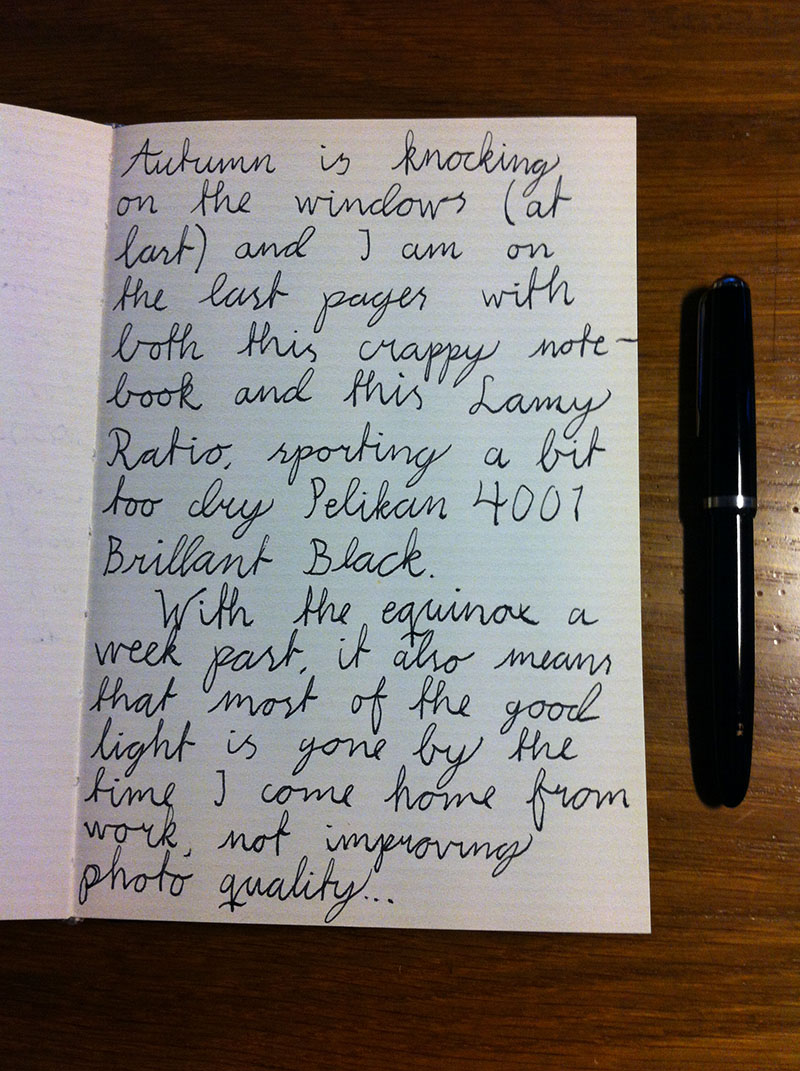 Autumn is knocking
on the windows (at
last) and I am on
the last pages with
both this crappy note-
book and this Lamy
Ratio, sporting a bit
too dry Pelikan 4001
Brillant Black.
With the equinox a
week past, it also means
that most of the good
light is gone by the
time I come home from
work, not improving
photo quality...